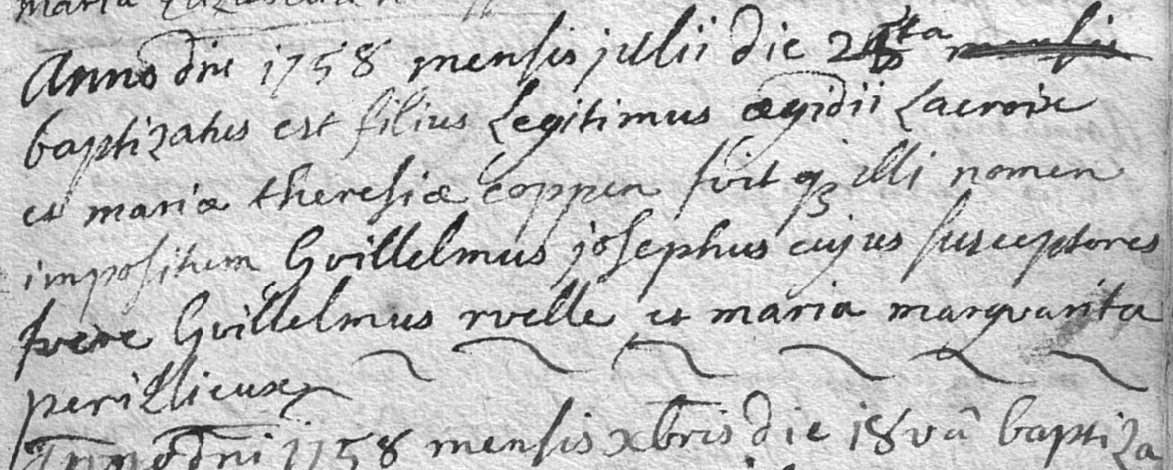 maria
Anno dni 1758 mensis julii die 25ta mensis
baptizatus est filius Legitimus ægidii Lacroix
et mariæ theresiæ coppen fuit q3 illi nomen
impositum Gvillelmus josephus cujus susceptores
fvere Gvillelmus rvelle et maria margvarita
perillieux
Anno dni 1758 mensis xbris die 18vâ baptiza